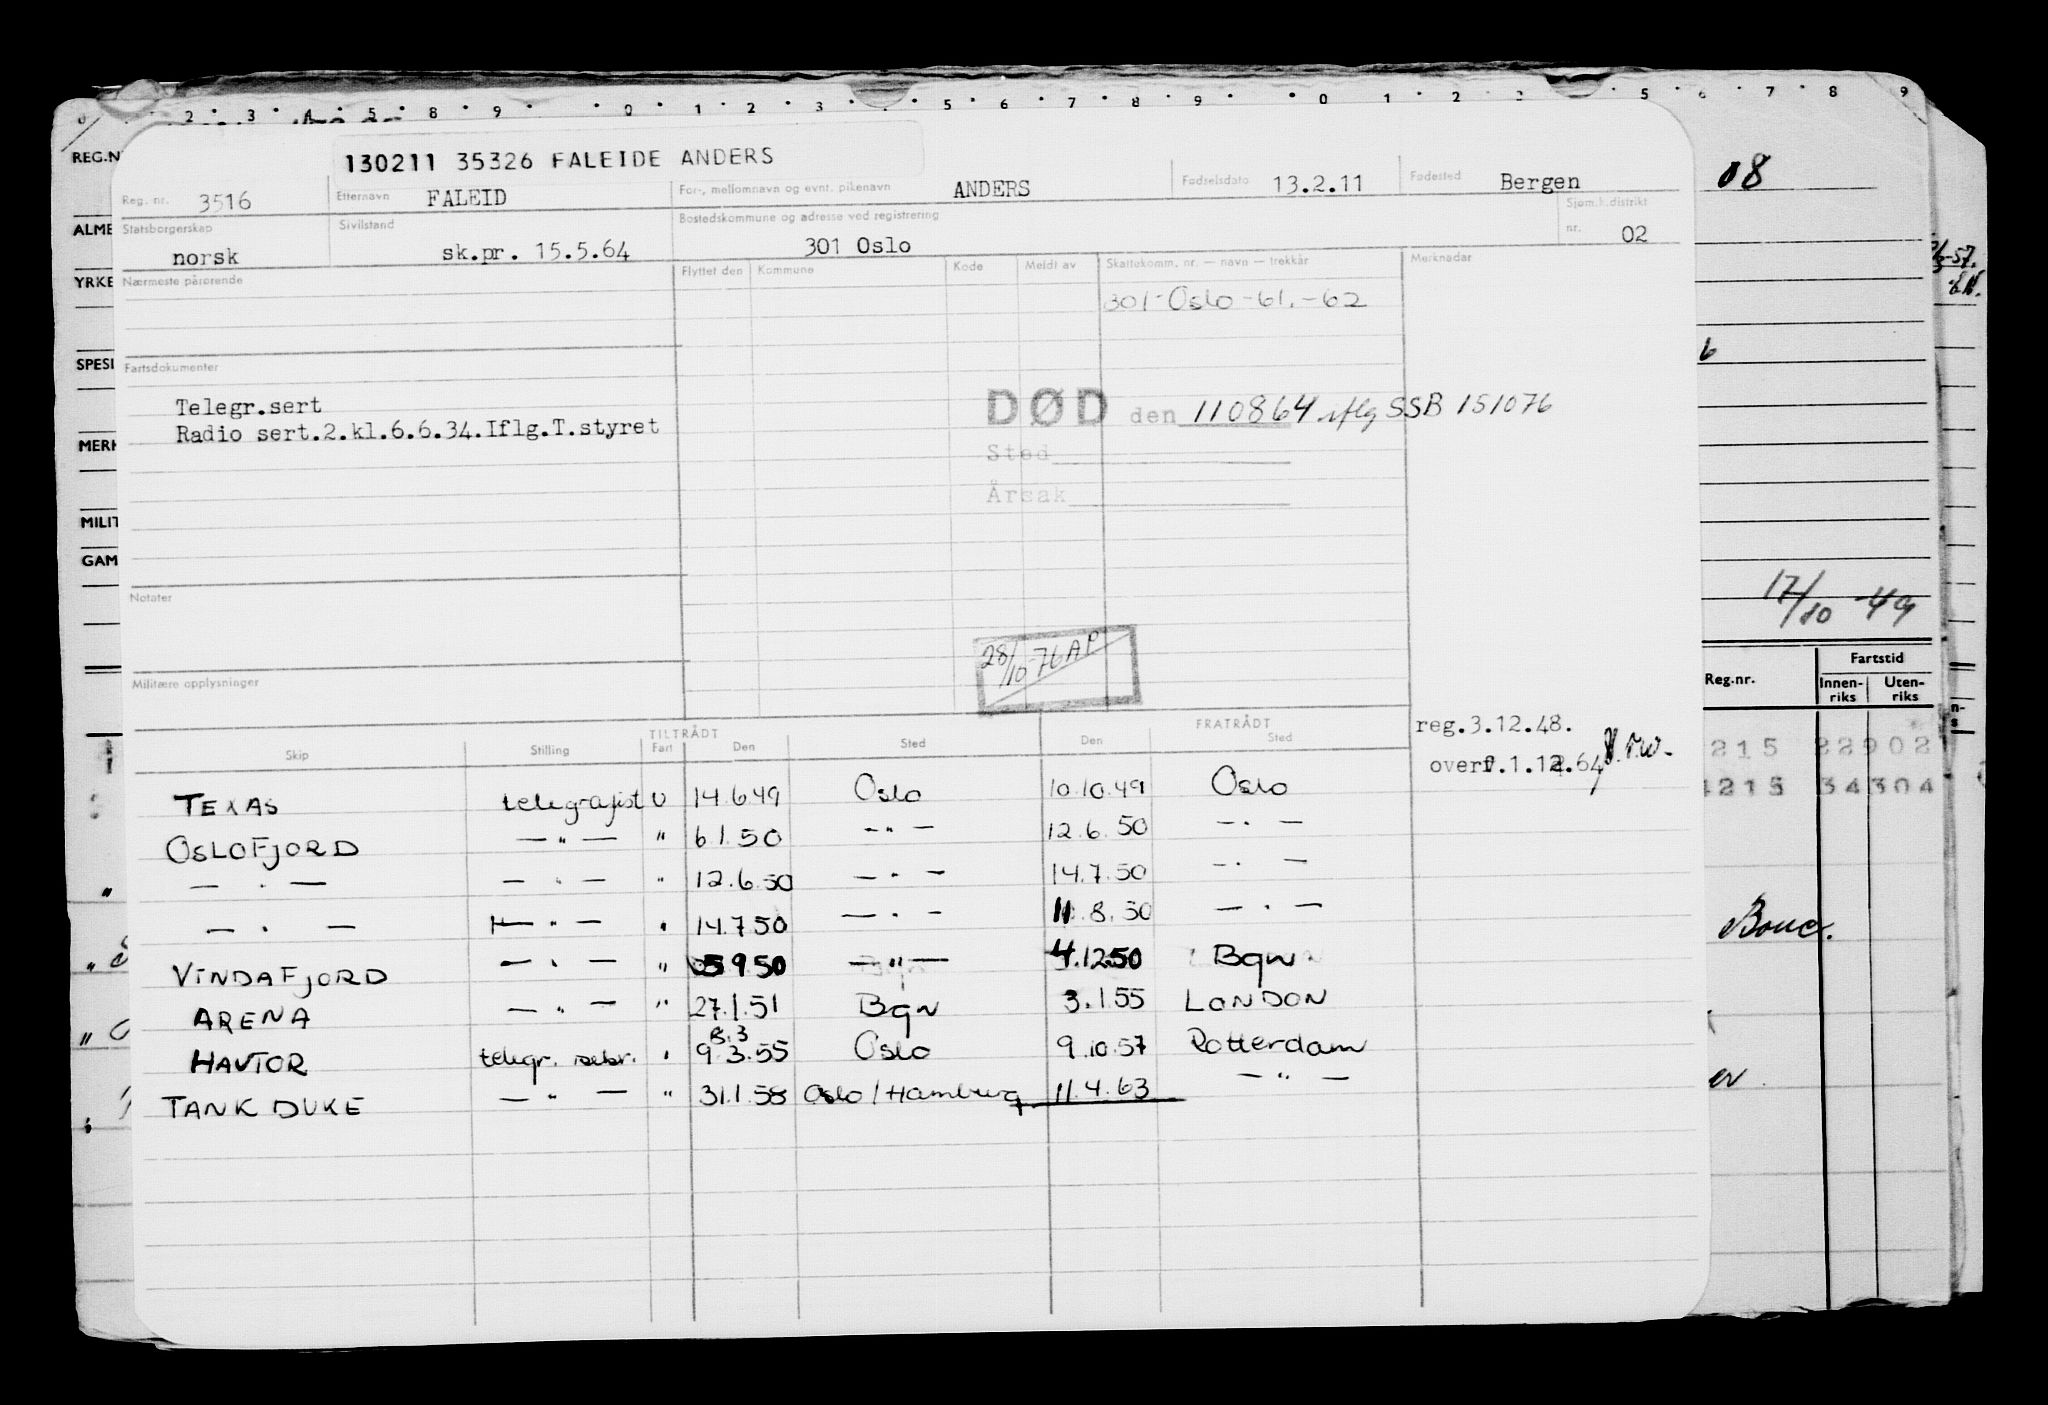 130211 35326 FALEIDE ANDERS
Reg. nr. 3516 Etternavn FALEID For-, mellomnavn og evnt. pikenavn ANDERS Fødselsdato 13.2.11 Fødested Bergen
Statsborgerskap norsk Sivilstand sk.pr. 15.5.64 Bostedskommune og adresse ved registrering 301 Oslo Sjøm.k.distrikt nr. 02
Nærmeste pårørende Flyttet den Kommune Kode Meldt av Skattekomm. nr. — navn — trekkår Merknader
301-Oslo-61.-62
Fartsdokumenter
Telegr.sert
Radio sert.2.kl.6.6.34.Iflg.T.styret
DØD den 110864 iflg SSB 151076
Sted
Årsak
Notater
28/10-76 AP
Militære opplysninger
reg.3.12.48.
TILTRÅDT FRATRÅDT
Skip Stilling Fart Den Sted Den Sted
TEXAS telegrafist U 14.6.49 Oslo 10.10.49 Oslo
OSLOFJORD — " — " 6.1.50 — " — 12.6.50 — " —
— " — — " — " 12.6.50 — " — 14.7.50 — " —
— " — — " — " 14.7.50 — " — 11.8.50 — " —
VINDAFJORD — " — " 5.9.50 — " — 4.12.50 Bgn
ARENA — " — " 27.1.51 Bgn 3.1.55 LONDON
8.3
HAVTOR telegr. " 9.3.55 Oslo 9.10.57 Rotterdam
TANK DUKE — " — " 31.1.58 Oslo / Hamburg 11.4.63 — " —
REG.N
ALME
YRKE
SPESI
MERK
MILIT
GAM
08
17/10-49
Reg.nr. Fartstid
Innen-riks Uten-riks
215 22902
4215 34304